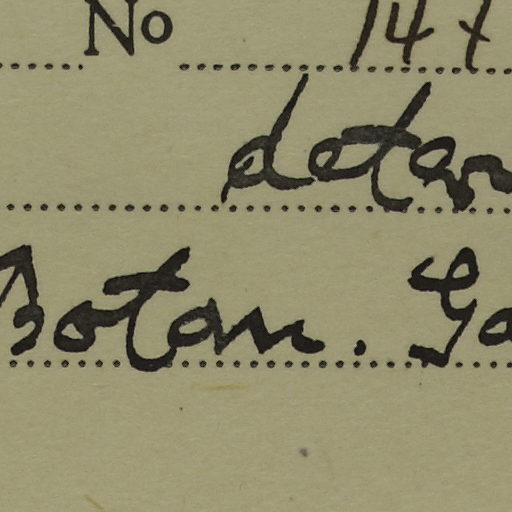 No 147
detar
Botan. Ga